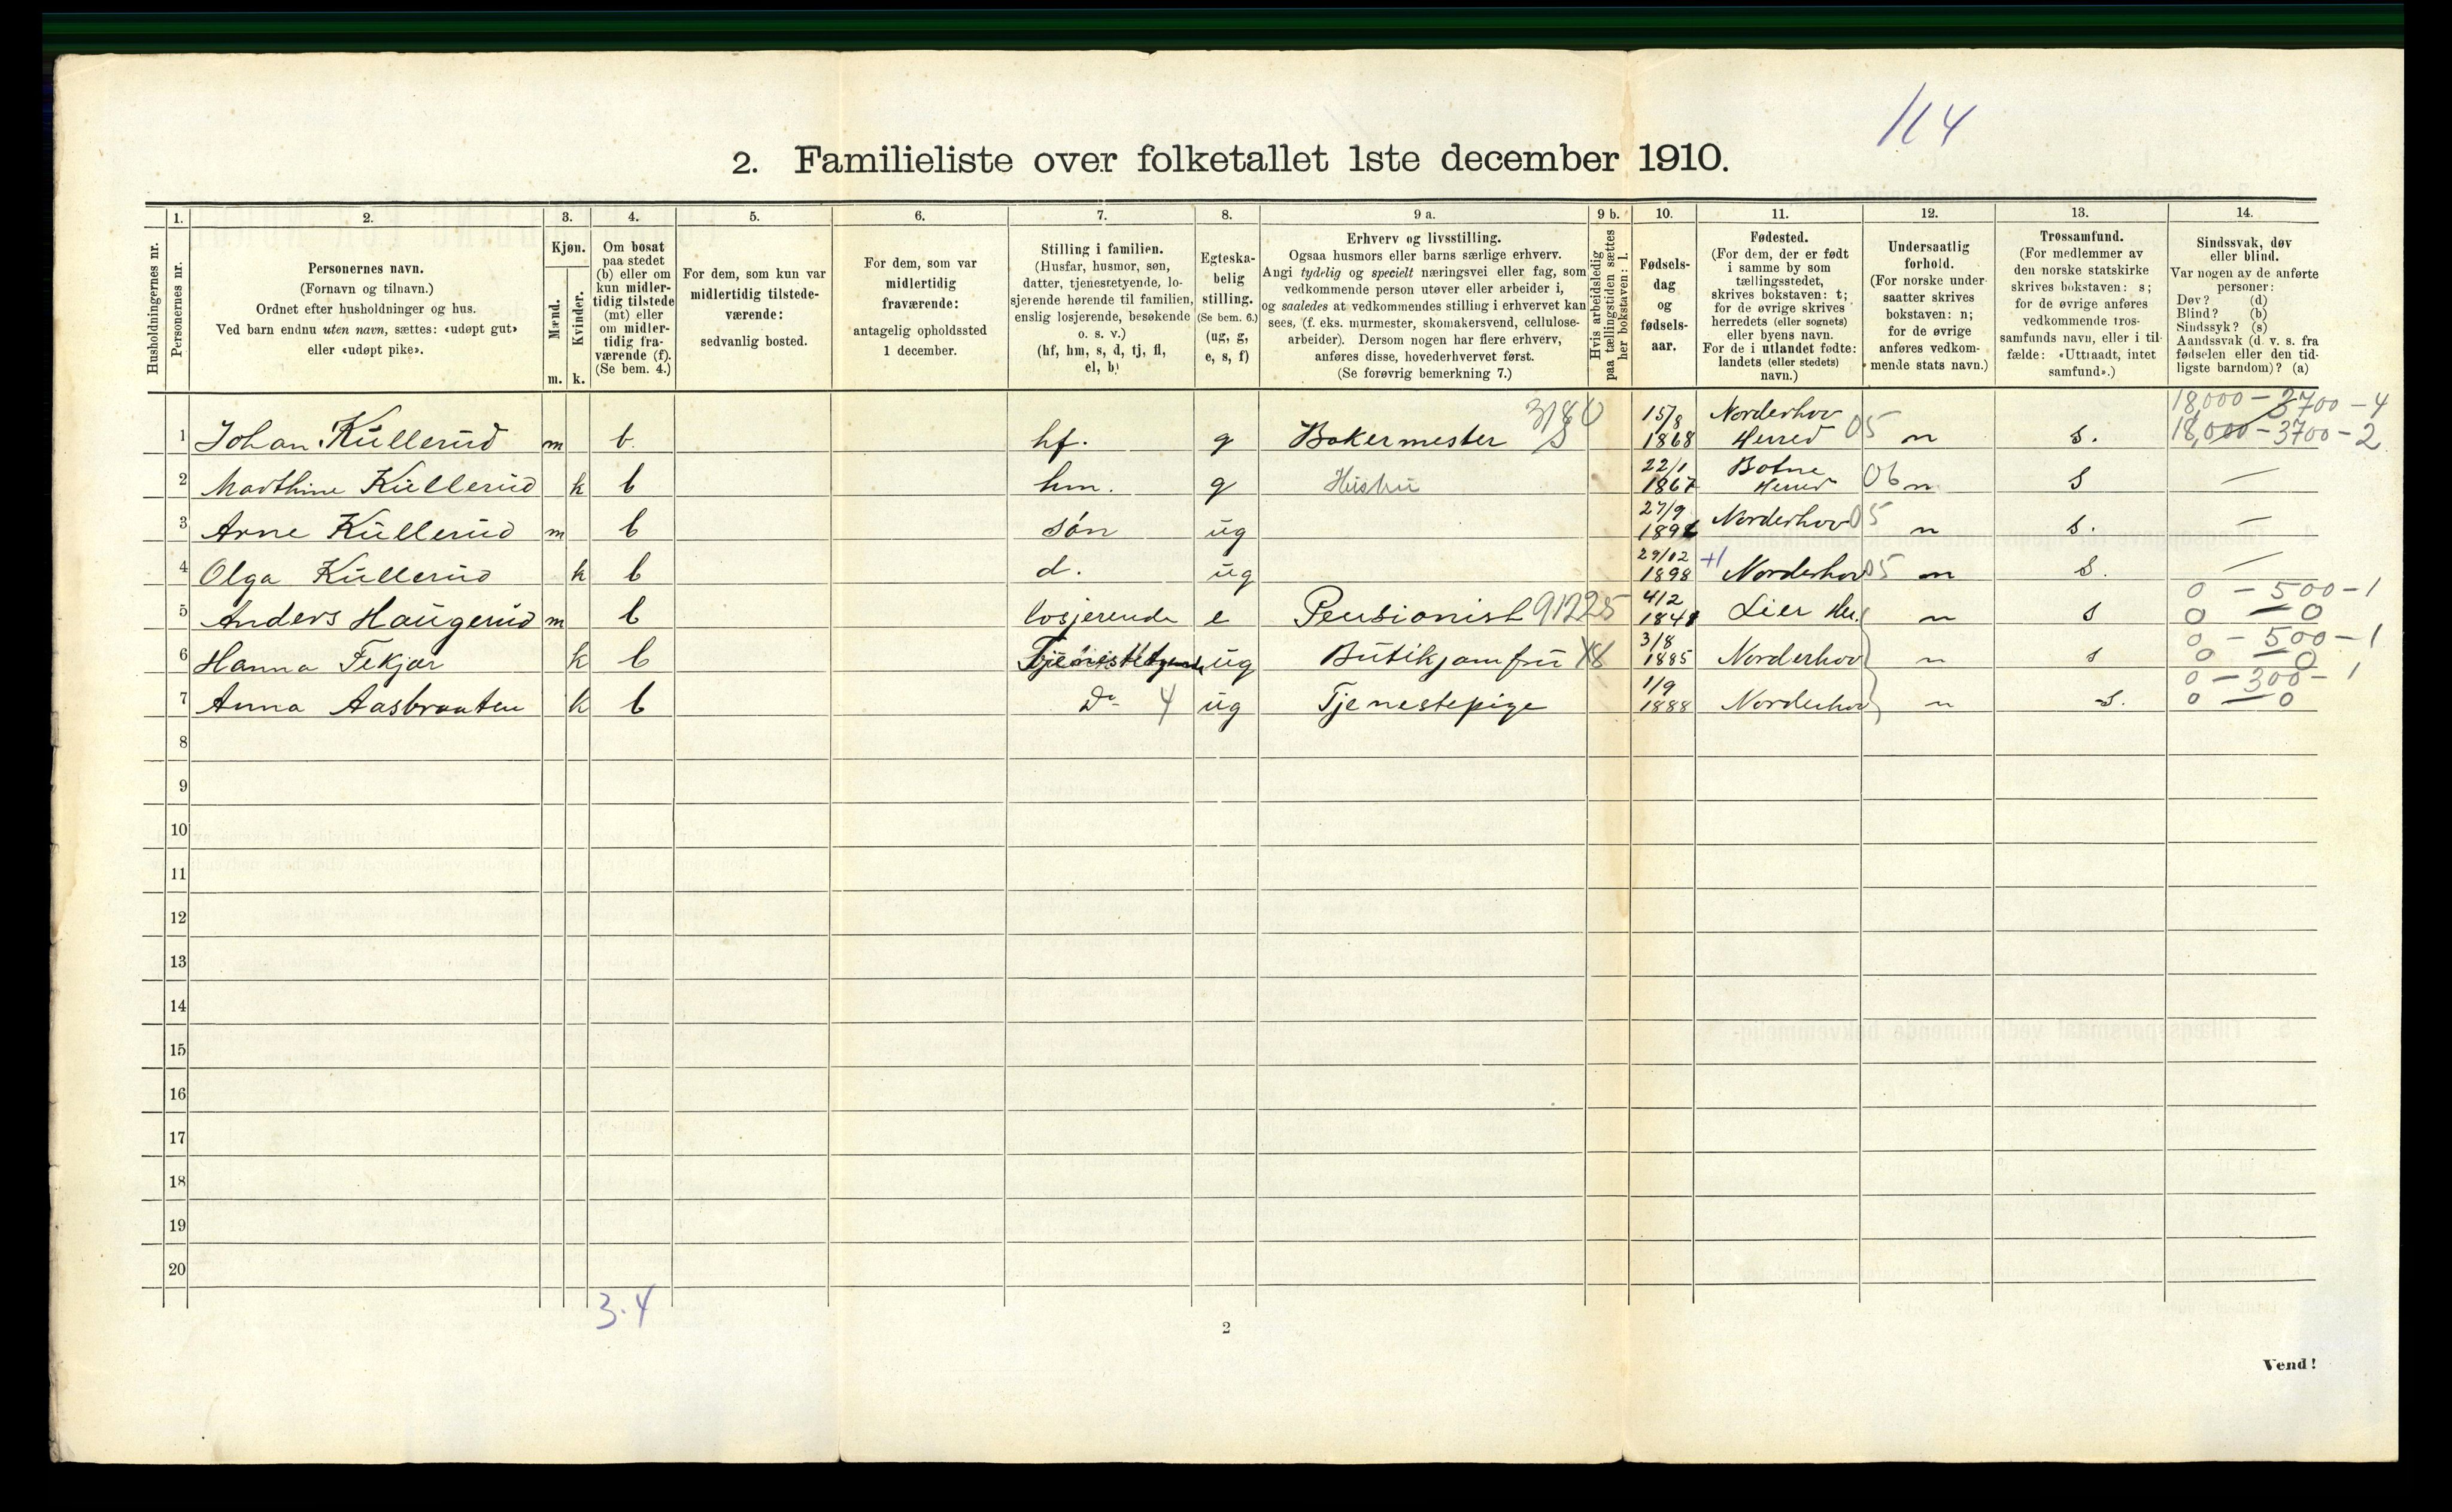 114
2. Familieliste over folketallet 1ste december 1910.
1. 2. 3. 4. 5. 6. 7. 8. 9 a. 9 b. 10. 11. 12. 13. 14.
Husholdningernes nr.
Personernes nr.
Personernes navn.
(Fornavn og tilnavn.)
Ordnet efter husholdninger og hus.
Ved barn endnu uten navn, sættes: «udøpt gut»
eller «udøpt pike».
Kjøn.
Mænd.
Kvinder.
m. k.
Om bosat
paa stedet
(b) eller om
kun midler-
tidig tilstede
(mt) eller
om midler-
tidig fra-
værende (f).
(Se bem. 4.)
For dem, som kun var
midlertidig tilstede-
værende:
sedvanlig bosted.
For dem, som var
midlertidig
fraværende:
antagelig opholdssted
1 december.
Stilling i familien.
(Husfar, husmor, søn,
datter, tjenestetyende, lo-
sjerende hørende til familien,
enslig losjerende, besøkende
o. s. v.)
(hf, hm, s, d, tj, fl,
el, b)
Egteska-
belig
stilling.
(Se bem. 6.)
(ug, g,
e, s, f)
Erhverv og livsstilling.
Ogsaa husmors eller barns særlige erhverv.
Angi tydelig og specielt næringsvei eller fag, som
vedkommende person utøver eller arbeider i,
og saaledes at vedkommendes stilling i erhvervet kan
sees, (f. eks. murmester, skomakersvend, cellulose-
arbeider). Dersom nogen har flere erhverv,
anføres disse, hovederhvervet først.
(Se forøvrig bemerkning 7.)
Hvis arbeidsledig
paa tællingstiden sættes
her bokstaven: l.
Fødsels-
dag
og
fødsels-
aar.
Fødested.
(For dem, der er født
i samme by som
tællingsstedet,
skrives bokstaven: t;
for de øvrige skrives
herredets (eller sognets)
eller byens navn.
For de i utlandet fødte:
landets (eller stedets)
navn.)
Undersaatlig
forhold.
(For norske under-
saatter skrives
bokstaven: n;
for de øvrige
anføres vedkom-
mende stats navn.)
Trossamfund.
(For medlemmer av
den norske statskirke
skrives bokstaven: s;
for de øvrige anføres
vedkommende tros-
samfunds navn, eller i til-
fælde: «Uttraadt, intet
samfund».)
Sindssvak, døv
eller blind.
Var nogen av de anførte
personer:
Døv? (d)
Blind? (b)
Sindssyk? (s)
Aandssvak (d. v. s. fra
fødselen eller den tid-
ligste barndom)? (a)
18,000 - 3700 - 4
1 Johan Kullerud m b. hf. g Bakermester 3180 S 15/8 1868 Norderhov Herred 05 n s. 18,000 - 3700 - 2
2 Marthine Kullerud k b hm. g Hushu 22/1 1867 Botne Herred 06 n s —
3 Arne Kullerud m b søn ug 27/9 Norderhov 05 n s. —
4 Olga Kullerud k b d. ug 29/12 1898 +1 Norderhov 05 n s. —
0 - 500 - 1
5 Anders Haugerud m b losjerende e Pensionist 91225 4/2 Lier Her. n s 0 — 0
0 - 500 - 1
6 Hanna Fekjær k b Tjenestetyende ug Butikjomfru X8 3/8 1885 Norderhov n s 0 — 0
0 - 300 - 1
7 Anna Aasbraaten k b Do 4 ug Tjenestepige 1/9 1888 Norderhov n s. 0 — 0
8
9
10
11
12
13
14
15
16
17
18
19
20
3.4
2
Vend!